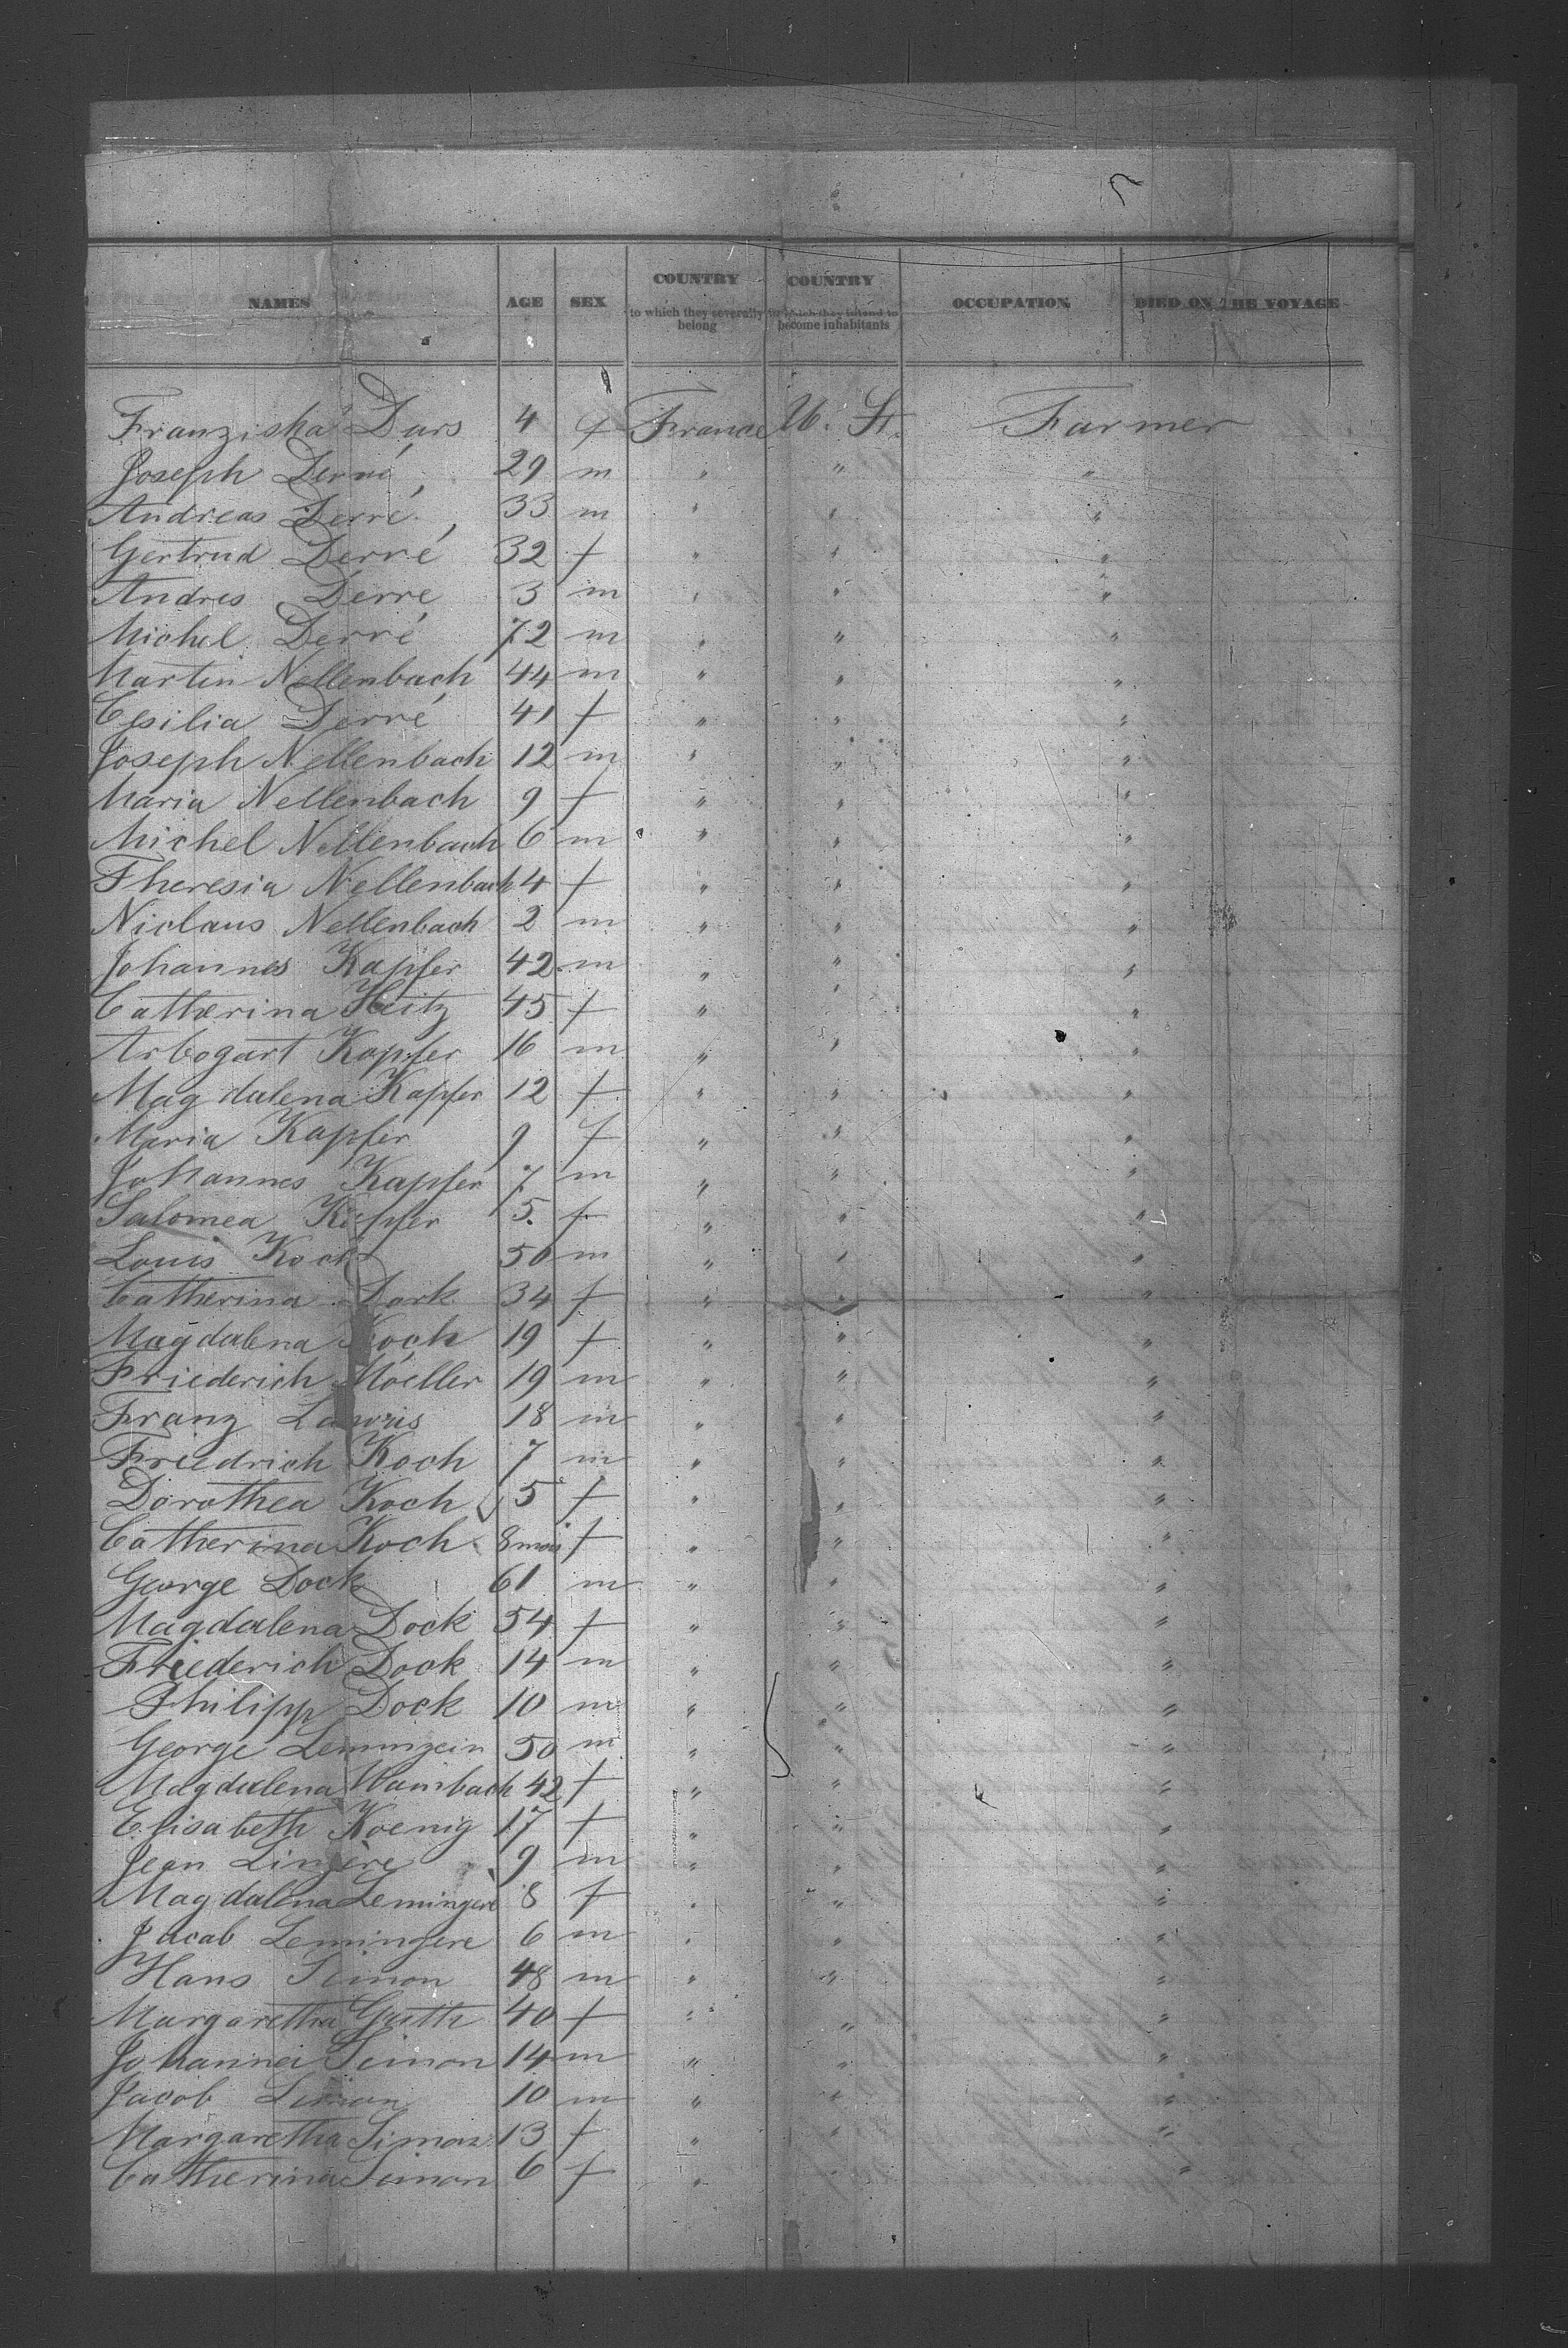 NAMES AGE SEX COUNTRY to which they severally belong COUNTRY to which they intend to become inhabitants OCCUPATION DIED ON THE VOYAGE
Franziska Durs 4 f France U. St. Farmer
Joseph Derré 29 m " " "
Andreas Derré 33 m " " "
Gertrud Derré 32 f " " "
Andres Derre 3 m " " "
Michel Derré 72 m " " "
Martin Nellenbach 44 m " " "
Cesilia Derré 41 f " " "
Joseph Nellenbach 12 m " " "
Maria Nellenbach 9 f " " "
Michel Nellenbach 6 m " " "
Theresia Nellenbach 4 f " " "
Niclaus Nellenbach 2 m " " "
Johannes Kapfer 42 m " " "
Catherina Heitz 45 f " " "
Arbogart Kapfer 16 m " " "
Magdalena Kapfer 12 f " " "
Maria Kapfer 9 f " " "
Johannes Kapfer 7 m " " "
Salomea Kapfer 5 f " " "
Louis Koch 50 m " " "
Catherina Dork 34 f " " "
Magdalena Koch 19 f " " "
Friederich Moeller 19 m " " "
Franz 18 m " " "
Friedrich Koch 7 m " " "
Dorothea Koch 5 f " " "
Catherina Koch 8 mois f " " "
George Dock 61 m " " "
Magdalena Dock 54 f " " "
Friederich Dock 14 m " " "
Philipp Dock 10 m " " "
George Lemmzein 50 m " " "
Magdalena Wambach 42 f " " "
Elisabeth Koenig 17 f " " "
Jean Lingere 9 m " " "
Magdalena Lemingere 8 f " " "
Jacab Lemingere 6 m " " "
Hans Simon 48 m " " "
Margaretha Guth 40 f " " "
Johannes Simon 14 m " " "
Jacob Simon 10 m " " "
Margaretha Simon 13 f " " "
Catherina Simon 6 f " " "